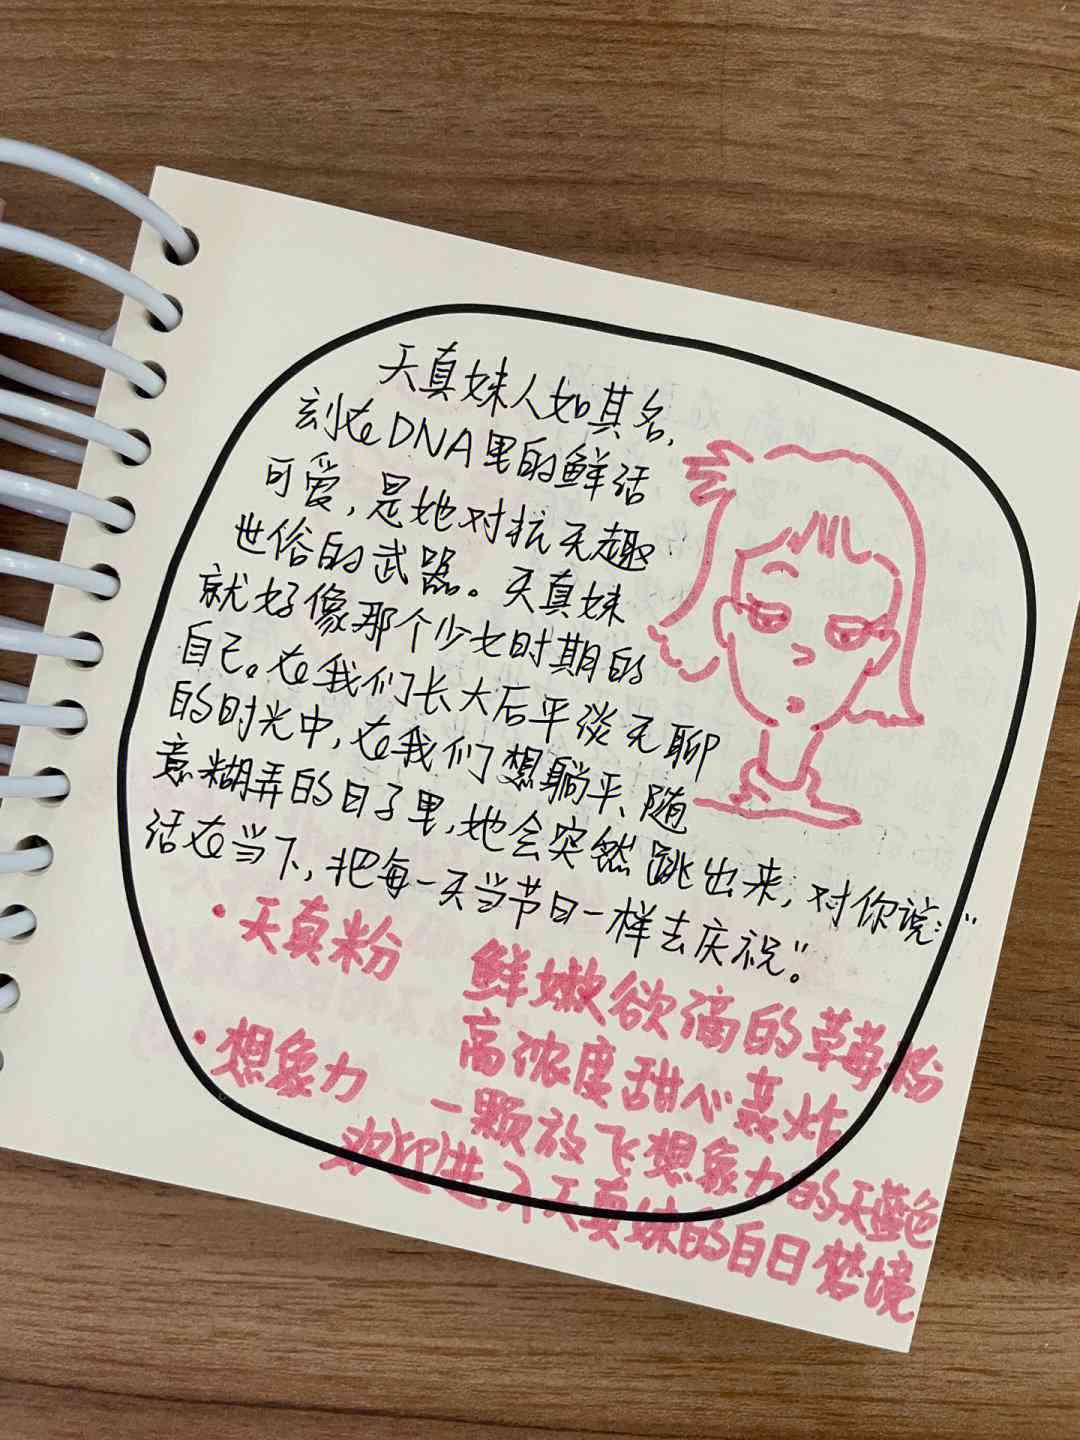 天真妹人如其名,
刻在DNA里的鲜活
可爱,是她对抗无趣
世俗的武器。天真妹
就好像那个少女时期的
自己。在我们长大后平淡无聊
的时光中,在我们想躺平、随
意糊弄的日子里,她会突然跳出来,对你说:“
活在当下,把每一天当节日一样去庆祝”。
·天真粉 鲜嫩欲滴的草莓粉
高浓度甜心轰炸
·想象力 一颗放飞想象力的天蓝色
欢迎进入天真妹的白日梦境